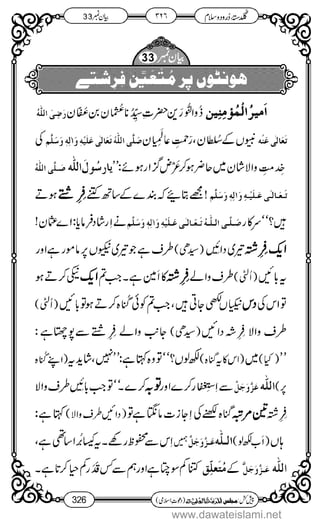 گلدستۂ درود و سلام ۳۲۶ بیان نمبر 33
بیان نمبر 33
ہونٹوں پر مُتَعَیَّن فِرِشتے
اَمِیرُ الْمُؤمِنِین ذُوالنُّورَین حضرتِ سیِّدُنا عُثمان بن عَفّان رَضِیَ اللّٰہُ
تَعَالٰی عَنْہُ نبیوں کے سُلطان، رَحمتِ عالمیان صَلَّی اللّٰہُ تَعَالٰی عَلَیْہِ وَاٰلِہٖ وَسَلَّم کی
خِدمتِ والا شان میں حاضر ہو کر عَرْض گُزار ہوئے: ’’یارسولَ اللّٰہ صَلَّی اللّٰہُ
تَـعَـالٰی عَـلَـیْـہِ وَاٰلِـہٖ وَسَلَّم! مجھے بتائیے کہ بندے کے ساتھ کتنے فِرِشتے ہوتے
ہیں؟‘‘ سرکار صَلَّـی اللّٰـہُ تَـعَـالٰی عَلَیْـہِ وَاٰلِـہٖ وَسَلَّم نے ارشاد فرمایا: اے عثمان!
ایک فِرِشتہ تیری دائیں (سیدھی) طرف ہے جو تیری نیکیوں پر مامور ہے اور
یہ بائیں (اُلٹی) طرف والے فِرِشتے کا امین ہے۔ جب تم ایک نیکی کرتے ہو
تو اس کی دس نیکیاں لکھی جاتی ہیں، جب تم کوئی گناہ کرتے ہو تو بائیں (اُلٹی)
طرف والا فِرِشتہ دائیں (سیدھی) جانب والے فِرِشتے سے پوچھتا ہے:
’’(کیا) میں (اس کا یہ گناہ) لکھ لوں؟‘‘ تو وہ کہتا ہے: ’’نہیں، شاید، یہ (اپنے گناہ
پر) اللّٰہ عَزَّوَجَلَّ سے اِستِغفار کرے اور توبہ کرے۔‘‘ توجب بائیں طرف والا
فِرِشتہ تین مرتبہ گناہ لکھنے کی اجازت مانگتا ہے تو (دائیں طرف والا) کہتا ہے:
ہاں (اب لکھ لو) اللّٰہ عَزَّوَجَلَّ ہمیں اس سے محفوظ رکھے۔ یہ کیسا بُرا ساتھی ہے،
اللّٰہ عَزَّوَجَلَّ کے مُتعلِّق کتنا کم سوچتا ہے اور ہم سے کس قدَر کم حیا کرتا ہے۔
326
www.dawateislami.net